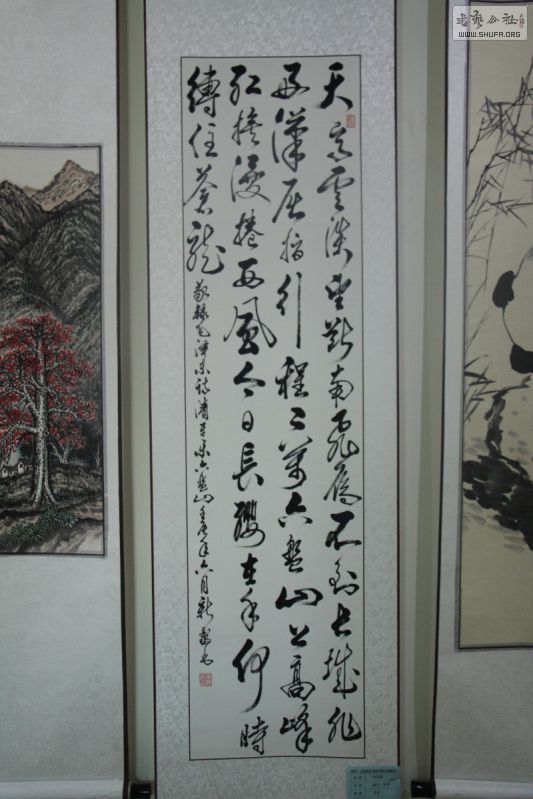 書藝公社
WWW.SHUFA.ORG
天高雲淡望斷南飛雁不到長城非
好漢屈指行程二萬六盤山上高峰
紅旗漫捲西風今日長纓在手何時
縛住蒼龍
敬録毛澤東詞清平樂六盤山 年六月新 書